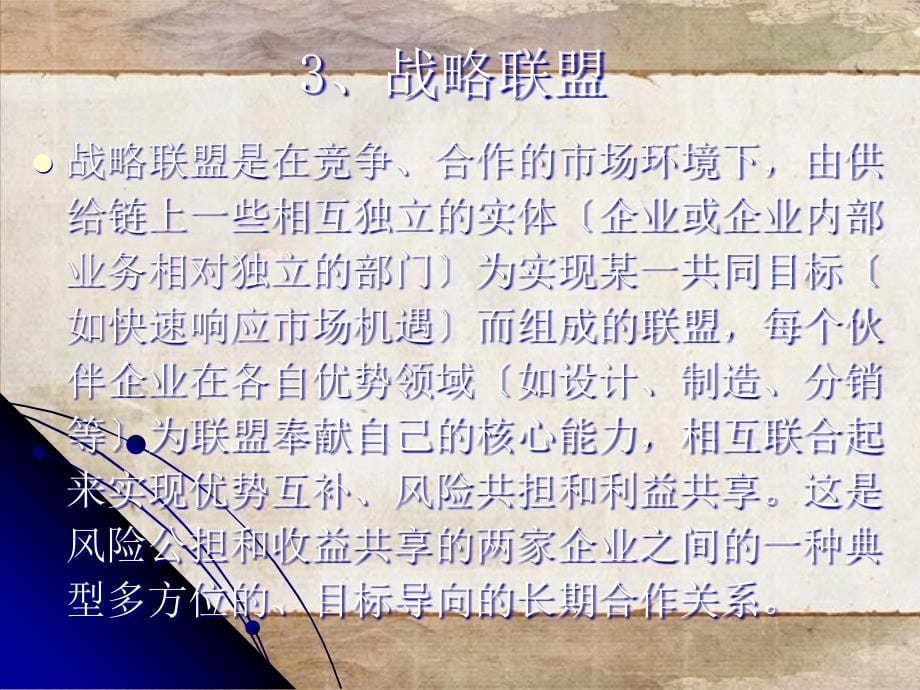 3、战略联盟
战略联盟是在竞争、合作的市场环境下，由供
给链上一些相互独立的实体〔企业或企业内部
业务相对独立的部门〕为实现某一共同目标〔
如快速响应市场机遇〕而组成的联盟，每个伙
伴企业在各自优势领域〔如设计、制造、分销
等〕为联盟奉献自己的核心能力，相互联合起
来实现优势互补、风险共担和利益共享。这是
风险公担和收益共享的两家企业之间的一种典
型多方位的、目标导向的长期合作关系。